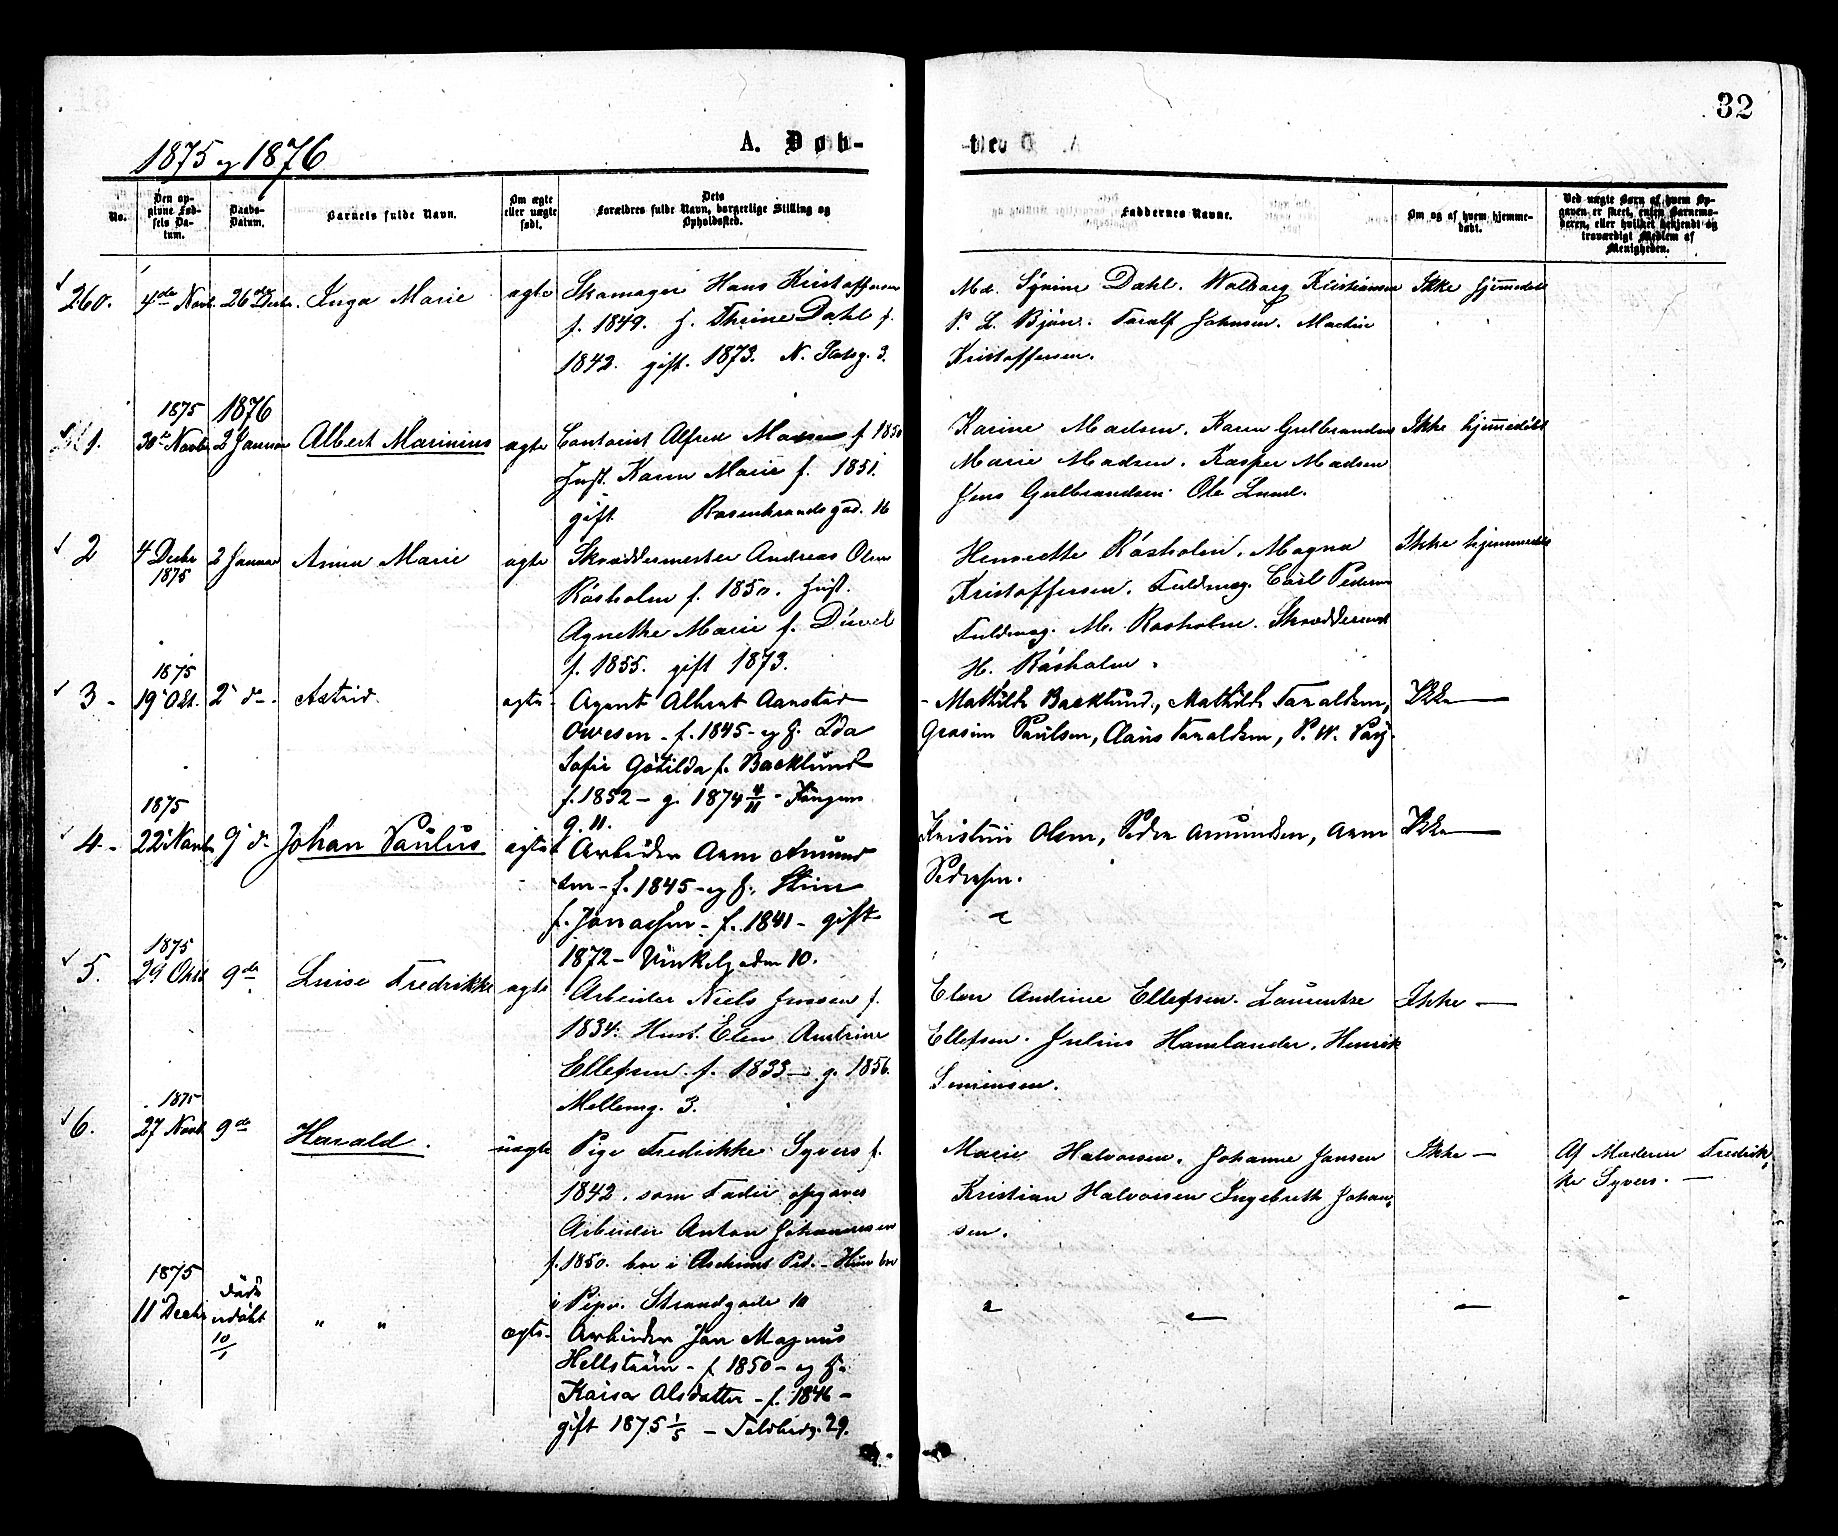 32
1875 og 1876
A. Døb-
No.
Den op-
givne Fød-
sels Da-
tum.
Daabs-
Datum.
Barnets fulde Navn.
Om ægte
eller uægte
født.
Dets
Forældres fulde Navn, borgerlige Stilling og
Opholdssted.
Faddernes Navne.
Om og af hvem hjemme-
døbt.
Ved uægte Børn af hvem Op-
gaven er skeet, enten Barnemo-
deren, eller hvilket bekjendt og
troværdigt Medlem af
Menigheden.
260. 4de Novb. 26de Decbr. Inga Marie ægte Skomager Hans Kristoffersen
f. 1849. H. Thrine Dahl f.
1842. gift. 1873. N. 3.
Md. Synine Dahl. Walborg Kristiansen
P. L. Bjørn. Taralf Johnsen. Martin
Kristoffersen.
Ikke hjemmedøbt
1875 1876
1. 30te Novbr 2 Januar Albert Marinius ægte Contorist Alfred Madsen f 1850
Hust. Karen Marie f. 1851.
gift Rosenkrandsgad. 16
Karine Madsen. Karen Gulbrandsen
Marie Madsen. Kasper Madsen
Jens Gulbrandsen. Ole Lund.
Ikke hjemmedøbt
2 4 Decbr 2 Januar Anna Marie ægte Skræddermester Andreas Olsen
1875
Råsholm f. 1850. Hust.
Agnethe Marie f. Düvel
f. 1855. gift 1873.
Henriette Råsholm. Magna
Kristoffersen. Fuldmæg. Carl Pedersen
Fuldmæg. M. Rosholm. Skræddermest
H. Råsholm.
Ikke hjemmedøbt
1875
3 - 19 Okt. 2 d-. Astrid. ægte Agent Albert Aanstad
Owesen - f. 1845 - og H. Ida
Sofie Gotilda f. Backlund
f. 1852 - g. 1874 4/11 - Kongens
g. 11.
Mathilde Backlund, Mathilde Taraldsen,
Gerasim Paulsen, Claus Taraldsen, P. W.
Ikke —
1875
4 - 22 Novbr 9 d- Johan Paulus ægte Arbeider Aron Amund
sen - f. 1845 - og H. Stine
f. Jonassen - f. 1841 - gift
1872 - Vinkelgaden 10.
Kristine Olsen, Peder Amundsen, Aron
Pedersen.
Ikke —
1875
5. 29 Oktb 9de Luise Fredrikke ægte Arbeider Niels Jenssen f.
1834. Hust. Elen Andrine
Ellefsen f. 1833 - g. 1856.
Mellemg. 3.
Elen Andrine Ellefsen. Laurentze
Ellefsen. Julius Hamlander. Henrik
Simensen.
Ikke —
1875
6. 27 Novb 9de Harald. uægte Pige Fredrikke Syvers f.
1842. som Fader opgives
Arbeider Anton Johannesen
f. 1850. bor i Aschims Pd. - Hun bor
i Piperv. Strandgade 10
Marie Halvorsen. Johanne Jansen
Kristian Halvorsen Ingebreth Johan,
sen.
Ikke —
Af Moderen Fredrik,
ke Syvers. —
1875
11 Decbr død udøbt 10/1 " " ægte. Arbeider Jan Magnus
Hellstrøm - f. 1850 - og H.
Kaisa Olsdatter - f. 1846 -
gift 1875 1/5 - 29.